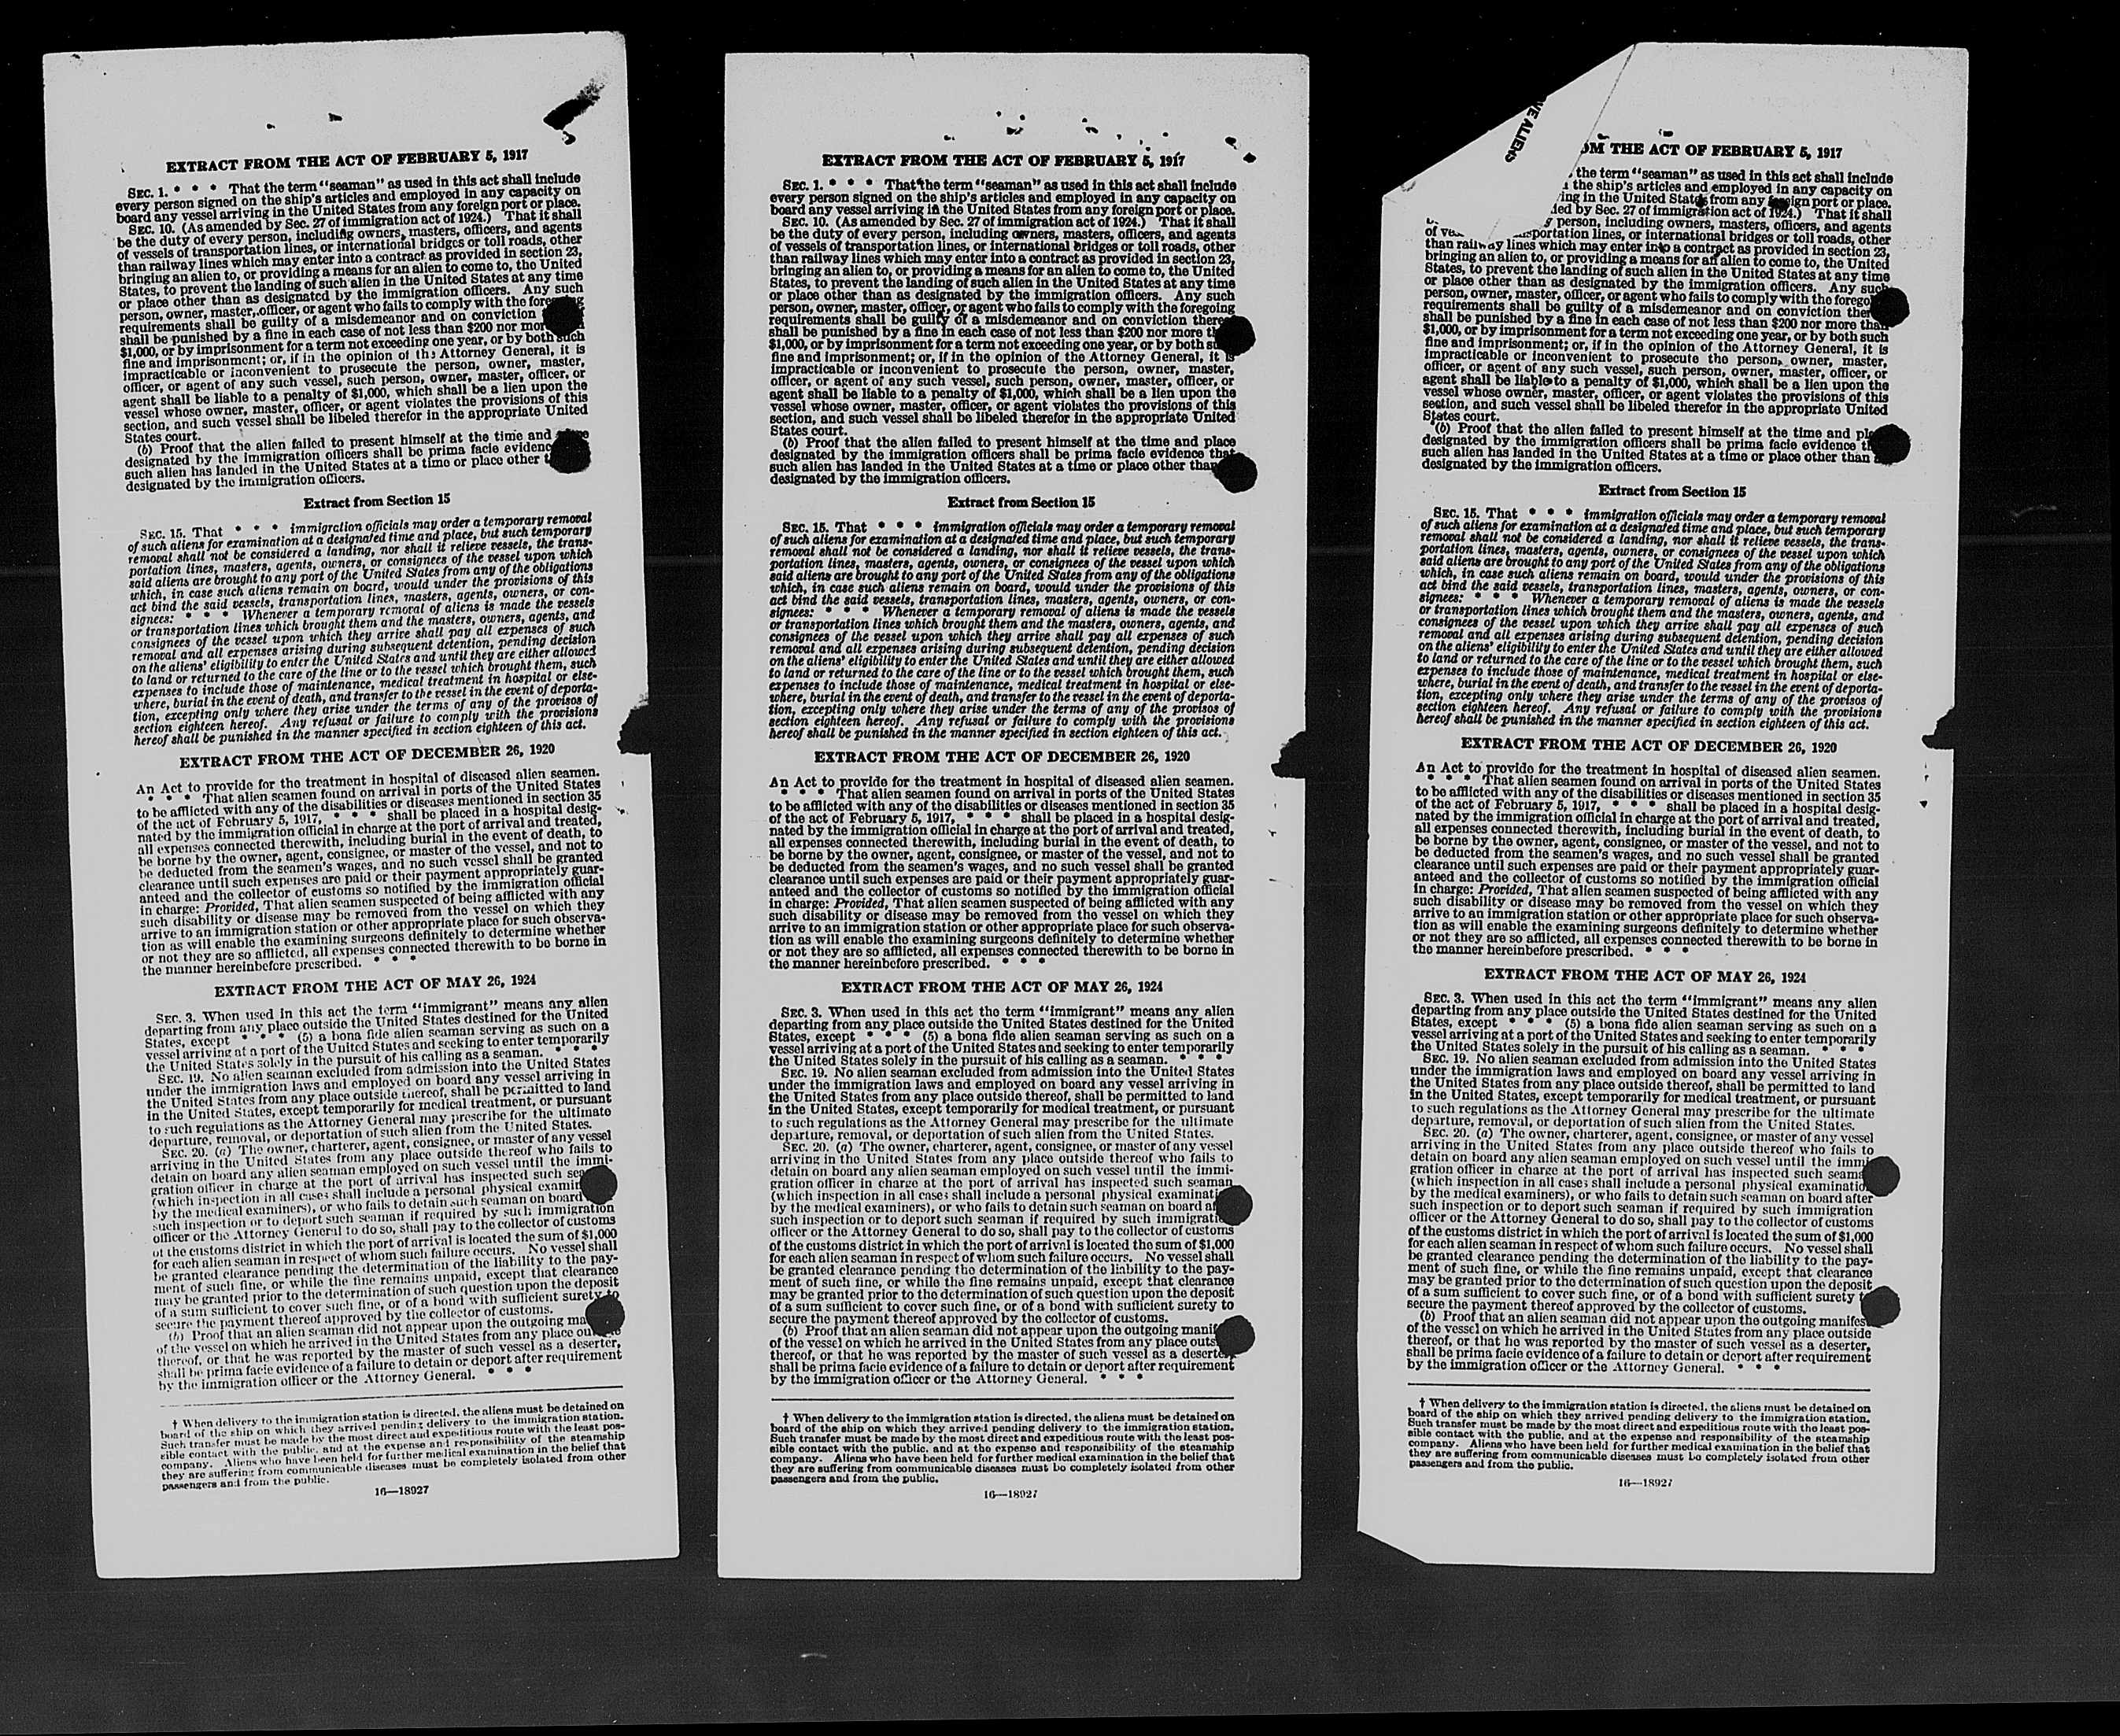 EXTRACT FROM THE ACT OF FEBRUARY 5, 1917
SEC. 1. * * * That the term "seaman" as used in this act shall include
every person signed on the ship's articles and employed in any capacity on
board any vessel arriving in the United States from any foreign port or place.
SEC. 10. (As amended by Sec. 27 of immigration act of 1924.) That it shall
be the duty of every person, including owners, masters, officers, and agents
of vessels of transportation lines, or international bridges or toll roads, other
than railway lines which may enter into a contract as provided in section 23,
bringing an alien to, or providing a means for an alien to come to, the United
States, to prevent the landing of such alien in the United States at any time
or place other than as designated by the immigration officers. Any such
person, owner, master, officer, or agent who fails to comply with the
requirements shall be guilty of a misdemeanor and on conviction
shall be punished by a fine in each case of not less than $200 nor
$1,000, or by imprisonment for a term not exceeding one year, or by both such
fine and imprisonment; or, if in the opinion of the Attorney General, it is
impracticable or inconvenient to prosecute the person, owner, master,
officer, or agent of any such vessel, such person, owner, master, officer, or
agent shall be liable to a penalty of $1,000, which shall be a lien upon the
vessel whose owner, master, officer, or agent violates the provisions of this
section, and such vessel shall be libeled therefor in the appropriate United
States court.
(b) Proof that the alien failed to present himself at the time and
designated by the immigration officers shall be prima facie
such alien has landed in the United States at a time or place other
designated by the immigration officers.
Extract from Section 15
SEC. 15. That * * * immigration officials may order a temporary removal
of such aliens for examination at a designated time and place, but such temporary
removal shall not be considered a landing, nor shall it relieve vessels, the trans-
portation lines, masters, agents, owners, or consignees of the vessel upon which
said aliens are brought to any port of the United States from any of the obligations
which, in case such aliens remain on board, would under the provisions of this
act bind the said vessels, transportation lines, masters, agents, owners, or con-
signees: * * * Whenever a temporary removal of aliens is made the vessels
or transportation lines which brought them and the masters, owners, agents, and
consignees of the vessel upon which they arrive shall pay all expenses of such
removal and all expenses arising during subsequent detention, pending decision
on the aliens' eligibility to enter the United States and until they are either allowed
to land or returned to the care of the line or to the vessel which brought them, such
expenses to include those of maintenance, medical treatment in hospital or else-
where, burial in the event of death, and transfer to the vessel in the event of deporta-
tion, excepting only where they arise under the terms of any of the provisos of
section eighteen hereof. Any refusal or failure to comply with the provisions
hereof shall be punished in the manner specified in section eighteen of this act.
EXTRACT FROM THE ACT OF DECEMBER 26, 1920
An Act to provide for the treatment in hospital of diseased alien seamen.
* * * * That alien seamen found on arrival in ports of the United States
to be afflicted with any of the disabilities or diseases mentioned in section 35
of the act of February 5, 1917, * * * shall be placed in a hospital desig-
nated by the immigration official in charge at the port of arrival and treated,
all expenses connected therewith, including burial in the event of death, to
be borne by the owner, agent, consignee, or master of the vessel, and not to
be deducted from the seamen's wages, and no such vessel shall be granted
clearance until such expenses are paid or their payment appropriately guar-
anteed and the collector of customs so notified by the immigration official
in charge: Provided, That alien seamen suspected of being afflicted with any
such disability or disease may be removed from the vessel on which they
arrive to an immigration station or other appropriate place for such observa-
tion as will enable the examining surgeons definitely to determine whether
or not they are so afflicted, all expenses connected therewith to be borne in
the manner hereinbefore prescribed. * * *
EXTRACT FROM THE ACT OF MAY 26, 1924
SEC. 3. When used in this act the term "immigrant" means any alien
departing from any place outside the United States destined for the United
States, except * * * (5) a bona fide alien seaman serving as such on a
vessel arriving at a port of the United States and seeking to enter temporarily
the United States solely in the pursuit of his calling as a seaman. * * *
SEC. 19. No alien seaman excluded from admission into the United States
under the immigration laws and employed on board any vessel arriving in
the United States from any place outside thereof, shall be permitted to land
in the United States, except temporarily for medical treatment, or pursuant
to such regulations as the Attorney General may prescribe for the ultimate
departure, removal, or deportation of such alien from the United States.
SEC. 20. (a) The owner, charterer, agent, consignee, or master of any vessel
arriving in the United States from any place outside thereof who fails to
detain on board any alien seaman employed on such vessel until the immi-
gration officer in charge at the port of arrival has inspected such
(which inspection in all cases shall include a personal physical
by the medical examiners), or who fails to detain such seaman on board
such inspection or to deport such seaman if required by such immigration
officer or the Attorney General to do so, shall pay to the collector of customs
of the customs district in which the port of arrival is located the sum of $1,000
for each alien seaman in respect of whom such failure occurs. No vessel shall
be granted clearance pending the determination of the liability to the pay-
ment of such fine, or while the fine remains unpaid, except that clearance
may be granted prior to the determination of such question upon the deposit
of a sum sufficient to cover such fine, or of a bond with sufficient surety to
secure the payment thereof approved by the collector of customs.
(b) Proof that an alien seaman did not appear upon the outgoing
of the vessel on which he arrived in the United States from any place
thereof, or that he was reported by the master of such vessel as a deserter,
shall be prima facie evidence of a failure to detain or deport after requirement
by the immigration officer or the Attorney General. * * *
† When delivery to the immigration station is directed, the aliens must be detained on
board of the ship on which they arrived pending delivery to the immigration station.
Such transfer must be made by the most direct and expeditious route with the least pos-
sible contact with the public, and at the expense and responsibility of the steamship
company. Aliens who have been held for further medical examination in the belief that
they are suffering from communicable diseases must be completely isolated from other
passengers and from the public.
16—18927
EXTRACT FROM THE ACT OF FEBRUARY 5, 1917
SEC. 1. * * * That the term "seaman" as used in this act shall include
every person signed on the ship's articles and employed in any capacity on
board any vessel arriving in the United States from any foreign port or place.
SEC. 10. (As amended by Sec. 27 of immigration act of 1924.) That it shall
be the duty of every person, including owners, masters, officers, and agents
of vessels of transportation lines, or international bridges or toll roads, other
than railway lines which may enter into a contract as provided in section 23,
bringing an alien to, or providing a means for an alien to come to, the United
States, to prevent the landing of such alien in the United States at any time
or place other than as designated by the immigration officers. Any such
person, owner, master, officer, or agent who fails to comply with the foregoing
requirements shall be guilty of a misdemeanor and on conviction
shall be punished by a fine in each case of not less than $200 nor more
$1,000, or by imprisonment for a term not exceeding one year, or by both
fine and imprisonment; or, if in the opinion of the Attorney General, it is
impracticable or inconvenient to prosecute the person, owner, master,
officer, or agent of any such vessel, such person, owner, master, officer, or
agent shall be liable to a penalty of $1,000, which shall be a lien upon the
vessel whose owner, master, officer, or agent violates the provisions of this
section, and such vessel shall be libeled therefor in the appropriate United
States court.
(b) Proof that the alien failed to present himself at the time and place
designated by the immigration officers shall be prima facie evidence that
such alien has landed in the United States at a time or place other than
designated by the immigration officers.
Extract from Section 15
SEC. 15. That * * * immigration officials may order a temporary removal
of such aliens for examination at a designated time and place, but such temporary
removal shall not be considered a landing, nor shall it relieve vessels, the trans-
portation lines, masters, agents, owners, or consignees of the vessel upon which
said aliens are brought to any port of the United States from any of the obligations
which, in case such aliens remain on board, would under the provisions of this
act bind the said vessels, transportation lines, masters, agents, owners, or con-
signees: * * * Whenever a temporary removal of aliens is made the vessels
or transportation lines which brought them and the masters, owners, agents, and
consignees of the vessel upon which they arrive shall pay all expenses of such
removal and all expenses arising during subsequent detention, pending decision
on the aliens' eligibility to enter the United States and until they are either allowed
to land or returned to the care of the line or to the vessel which brought them, such
expenses to include those of maintenance, medical treatment in hospital or else-
where, burial in the event of death, and transfer to the vessel in the event of deporta-
tion, excepting only where they arise under the terms of any of the provisos of
section eighteen hereof. Any refusal or failure to comply with the provisions
hereof shall be punished in the manner specified in section eighteen of this act.
EXTRACT FROM THE ACT OF DECEMBER 26, 1920
An Act to provide for the treatment in hospital of diseased alien seamen.
* * * * That alien seamen found on arrival in ports of the United States
to be afflicted with any of the disabilities or diseases mentioned in section 35
of the act of February 5, 1917, * * * shall be placed in a hospital desig-
nated by the immigration official in charge at the port of arrival and treated,
all expenses connected therewith, including burial in the event of death, to
be borne by the owner, agent, consignee, or master of the vessel, and not to
be deducted from the seamen's wages, and no such vessel shall be granted
clearance until such expenses are paid or their payment appropriately guar-
anteed and the collector of customs so notified by the immigration official
in charge: Provided, That alien seamen suspected of being afflicted with any
such disability or disease may be removed from the vessel on which they
arrive to an immigration station or other appropriate place for such observa-
tion as will enable the examining surgeons definitely to determine whether
or not they are so afflicted, all expenses connected therewith to be borne in
the manner hereinbefore prescribed. * * *
EXTRACT FROM THE ACT OF MAY 26, 1924
SEC. 3. When used in this act the term "immigrant" means any alien
departing from any place outside the United States destined for the United
States, except * * * (5) a bona fide alien seaman serving as such on a
vessel arriving at a port of the United States and seeking to enter temporarily
the United States solely in the pursuit of his calling as a seaman. * * *
SEC. 19. No alien seaman excluded from admission into the United States
under the immigration laws and employed on board any vessel arriving in
the United States from any place outside thereof, shall be permitted to land
in the United States, except temporarily for medical treatment, or pursuant
to such regulations as the Attorney General may prescribe for the ultimate
departure, removal, or deportation of such alien from the United States.
SEC. 20. (a) The owner, charterer, agent, consignee, or master of any vessel
arriving in the United States from any place outside thereof who fails to
detain on board any alien seaman employed on such vessel until the immi-
gration officer in charge at the port of arrival has inspected such seaman
(which inspection in all cases shall include a personal physical
by the medical examiners), or who fails to detain such seaman on board
such inspection or to deport such seaman if required by such
officer or the Attorney General to do so, shall pay to the collector of customs
of the customs district in which the port of arrival is located the sum of $1,000
for each alien seaman in respect of whom such failure occurs. No vessel shall
be granted clearance pending the determination of the liability to the pay-
ment of such fine, or while the fine remains unpaid, except that clearance
may be granted prior to the determination of such question upon the deposit
of a sum sufficient to cover such fine, or of a bond with sufficient surety to
secure the payment thereof approved by the collector of customs.
(b) Proof that an alien seaman did not appear upon the outgoing
of the vessel on which he arrived in the United States from any place
thereof, or that he was reported by the master of such vessel as a
shall be prima facie evidence of a failure to detain or deport after requirement
by the immigration officer or the Attorney General. * * *
† When delivery to the immigration station is directed, the aliens must be detained on
board of the ship on which they arrived pending delivery to the immigration station.
Such transfer must be made by the most direct and expeditious route with the least pos-
sible contact with the public, and at the expense and responsibility of the steamship
company. Aliens who have been held for further medical examination in the belief that
they are suffering from communicable diseases must be completely isolated from other
passengers and from the public.
16—18927
ALIENS
THE ACT OF FEBRUARY 5, 1917
the term "seaman" as used in this act shall include
the ship's articles and employed in any capacity on
in the United States from any foreign port or place.
by Sec. 27 of immigration act of 1924.) That it shall
person, including owners, masters, officers, and agents
of lines, or international bridges or toll roads, other
than railway lines which may enter into a contract as provided in section 23,
bringing an alien to, or providing a means for an alien to come to, the United
States, to prevent the landing of such alien in the United States at any time
or place other than as designated by the immigration officers. Any such
person, owner, master, officer, or agent who fails to comply with the
requirements shall be guilty of a misdemeanor and on conviction
shall be punished by a fine in each case of not less than $200 nor more than
$1,000, or by imprisonment for a term not exceeding one year, or by both such
fine and imprisonment; or, if in the opinion of the Attorney General, it is
impracticable or inconvenient to prosecute the person, owner, master,
officer, or agent of any such vessel, such person, owner, master, officer, or
agent shall be liable to a penalty of $1,000, which shall be a lien upon the
vessel whose owner, master, officer, or agent violates the provisions of this
section, and such vessel shall be libeled therefor in the appropriate United
States court.
(b) Proof that the alien failed to present himself at the time and
designated by the immigration officers shall be prima facie evidence
such alien has landed in the United States at a time or place other than
designated by the immigration officers.
Extract from Section 15
SEC. 15. That * * * immigration officials may order a temporary removal
of such aliens for examination at a designated time and place, but such temporary
removal shall not be considered a landing, nor shall it relieve vessels, the trans-
portation lines, masters, agents, owners, or consignees of the vessel upon which
said aliens are brought to any port of the United States from any of the obligations
which, in case such aliens remain on board, would under the provisions of this
act bind the said vessels, transportation lines, masters, agents, owners, or con-
signees: * * * Whenever a temporary removal of aliens is made the vessels
or transportation lines which brought them and the masters, owners, agents, and
consignees of the vessel upon which they arrive shall pay all expenses of such
removal and all expenses arising during subsequent detention, pending decision
on the aliens' eligibility to enter the United States and until they are either allowed
to land or returned to the care of the line or to the vessel which brought them, such
expenses to include those of maintenance, medical treatment in hospital or else-
where, burial in the event of death, and transfer to the vessel in the event of deporta-
tion, excepting only where they arise under the terms of any of the provisos of
section eighteen hereof. Any refusal or failure to comply with the provisions
hereof shall be punished in the manner specified in section eighteen of this act.
EXTRACT FROM THE ACT OF DECEMBER 26, 1920
An Act to provide for the treatment in hospital of diseased alien seamen.
* * * * That alien seamen found on arrival in ports of the United States
to be afflicted with any of the disabilities or diseases mentioned in section 35
of the act of February 5, 1917, * * * shall be placed in a hospital desig-
nated by the immigration official in charge at the port of arrival and treated,
all expenses connected therewith, including burial in the event of death, to
be borne by the owner, agent, consignee, or master of the vessel, and not to
be deducted from the seamen's wages, and no such vessel shall be granted
clearance until such expenses are paid or their payment appropriately guar-
anteed and the collector of customs so notified by the immigration official
in charge: Provided, That alien seamen suspected of being afflicted with any
such disability or disease may be removed from the vessel on which they
arrive to an immigration station or other appropriate place for such observa-
tion as will enable the examining surgeons definitely to determine whether
or not they are so afflicted, all expenses connected therewith to be borne in
the manner hereinbefore prescribed. * * *
EXTRACT FROM THE ACT OF MAY 26, 1924
SEC. 3. When used in this act the term "immigrant" means any alien
departing from any place outside the United States destined for the United
States, except * * * (5) a bona fide alien seaman serving as such on a
vessel arriving at a port of the United States and seeking to enter temporarily
the United States solely in the pursuit of his calling as a seaman. * * *
SEC. 19. No alien seaman excluded from admission into the United States
under the immigration laws and employed on board any vessel arriving in
the United States from any place outside thereof, shall be permitted to land
in the United States, except temporarily for medical treatment, or pursuant
to such regulations as the Attorney General may prescribe for the ultimate
departure, removal, or deportation of such alien from the United States.
SEC. 20. (a) The owner, charterer, agent, consignee, or master of any vessel
arriving in the United States from any place outside thereof who fails to
detain on board any alien seaman employed on such vessel until the immi-
gration officer in charge at the port of arrival has inspected such
(which inspection in all cases shall include a personal physical
by the medical examiners), or who fails to detain such seaman on board after
such inspection or to deport such seaman if required by such immigration
officer or the Attorney General to do so, shall pay to the collector of customs
of the customs district in which the port of arrival is located the sum of $1,000
for each alien seaman in respect of whom such failure occurs. No vessel shall
be granted clearance pending the determination of the liability to the pay-
ment of such fine, or while the fine remains unpaid, except that clearance
may be granted prior to the determination of such question upon the deposit
of a sum sufficient to cover such fine, or of a bond with sufficient surety
secure the payment thereof approved by the collector of customs.
(b) Proof that an alien seaman did not appear upon the outgoing
of the vessel on which he arrived in the United States from any place outside
thereof, or that he was reported by the master of such vessel as a deserter,
shall be prima facie evidence of a failure to detain or deport after requirement
by the immigration officer or the Attorney General. * * *
† When delivery to the immigration station is directed, the aliens must be detained on
board of the ship on which they arrived pending delivery to the immigration station.
Such transfer must be made by the most direct and expeditious route with the least pos-
sible contact with the public, and at the expense and responsibility of the steamship
company. Aliens who have been held for further medical examination in the belief that
they are suffering from communicable diseases must be completely isolated from other
passengers and from the public.
16—18927